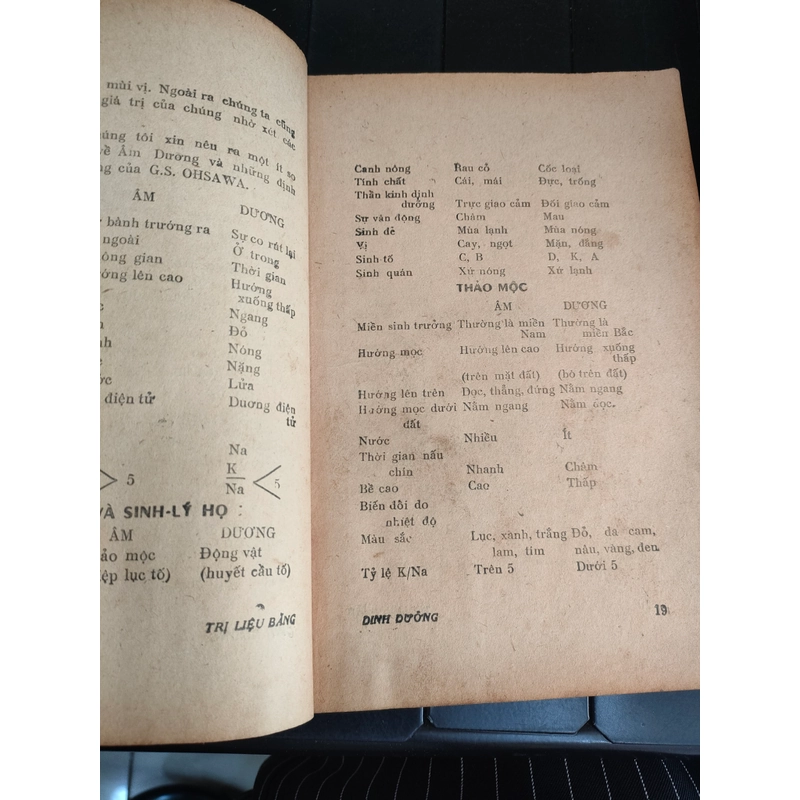 mùi vị. Ngoài ra chúng ta cũng
giá trị của chúng nhờ xét các
tôi xin nêu ra một ít so
về Âm Dương và những định
của G.S. OHSAWA.
ÂM DƯƠNG
bành trướng ra Sự co rút lại
ngoài Ở trong
gian Thời gian
lên cao Hướng
xuống thấp
Ngang
Đỏ
Nóng
Nặng
Lửa
điện tử Dương điện
tử
Na
K
> 5 Na < 5
VÀ SINH-LÝ HỌ :
ÂM DƯƠNG
mộc Động vật
lục tố) (huyết cầu tố)
TRỊ LIỆU BẰNG
Canh nông Rau cỏ Cốc loại
Tính chất Cái, mái Đực, trống
Thần kinh định
dưỡng Trực giao cảm Đối giao cảm
Sự vận động Chậm Mau
Sinh đẻ Mùa lạnh Mùa nóng
Vị Cay, ngọt Mặn, đắng
Sinh tố C, B D, K, A
Sinh quán Xứ nóng Xứ lạnh
THẢO MỘC
ÂM DƯƠNG
Miền sinh trưởng Thường là miền Thường là
Nam miền Bắc
Hướng mọc Hướng lên cao Hướng xuống
thấp
(trên mặt đất) (bò trên đất)
Hướng lên trên Dọc, thẳng, đứng Nằm ngang
Hướng mọc dưới Nằm ngang Nằm dọc.
đất
Nước Nhiều Ít
Thời gian nấu
chín Nhanh Chậm
Bề cao Cao Thấp
Biến đổi do
nhiệt độ
Màu sắc Lục, xành, trắng Đỏ, da cam,
lam, tím nàu, vàng, đen
Tỷ lệ K/Na Trên 5 Dưới 5
DINH DƯỠNG 19